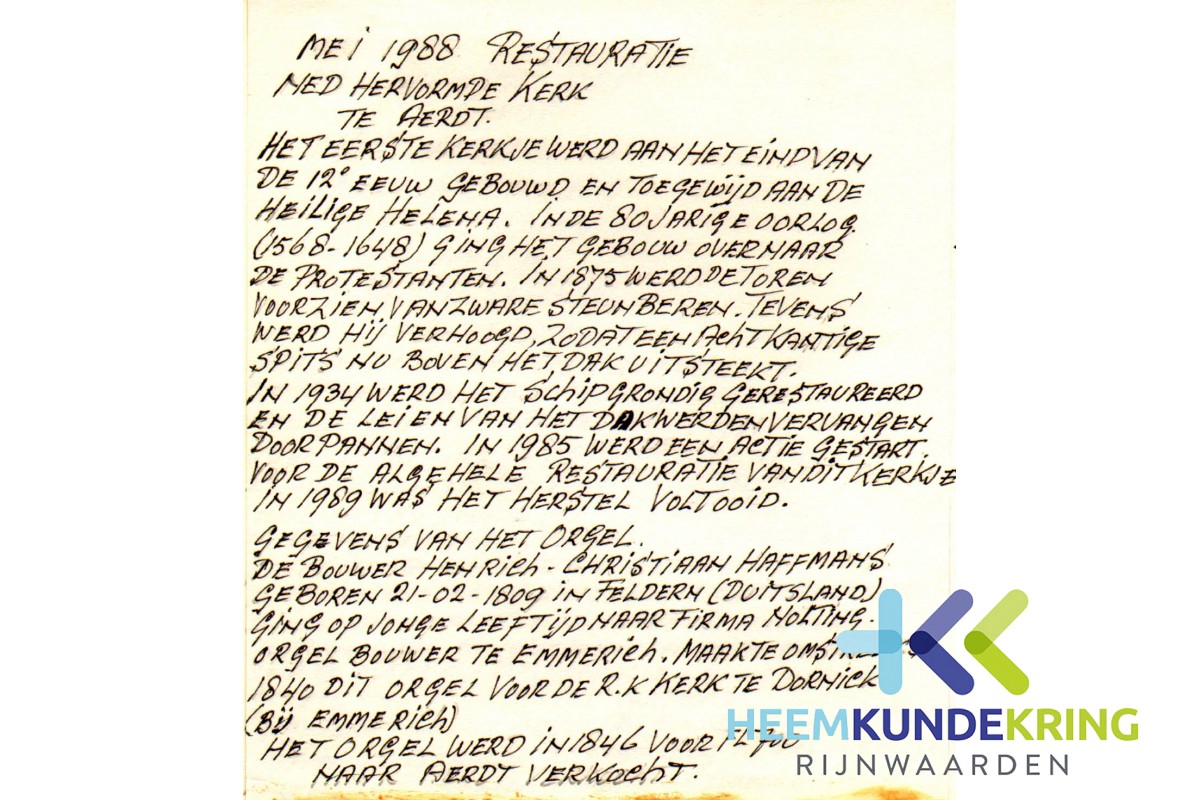 MEI 1988 RESTAURATIE
NED HERVORMDE KERK
TE AERDT.
HET EERSTE KERKJE WERD AAN HET EIND VAN
DE 12e EEUW GEBOUWD EN TOEGEWIJD AAN DE
HEILIGE HELENA. IN DE 80 JARIGE OORLOG
(1568-1648) GING HET GEBOUW OVER NAAR
DE PROTESTANTEN. IN 1875 WERD DE TOREN
VOORZIEN VAN ZWARE STEUNBEREN. TEVENS
WERD HIJ VERHOOGD, ZODAT EEN AChTKANTIGE
SPITS NU BOVEN HET DAK UITSTEEKT.
IN 1934 WERD HET SChIP GRONDIG GERESTAUREERD
EN DE LEIEN VAN HET DAK WERDEN VERVANGEN
DOOR PANNEN. IN 1985 WERD EEN ACTIE GESTART.
VOOR DE ALGEHELE RESTAURATIE VAN DIT KERKJE
IN 1989 WAS HET HERSTEL VOLTOOID.
GEGEVENS VAN HET ORGEL.
DE BOUWER HENRICh - CHRISTIAAN HAFFMANS
GEBOREN 21-02-1809 IN FELDERN (DUITSLAND)
GING OP JONGE LEEFTIJD NAAR FIRMA NOLTING.
ORGEL BOUWER TE EMMERICh. MAAKTE
1840 DIT ORGEL VOOR DE R.K KERK TE DORNICK
(BIJ EMMERICh)
HET ORGEL WERD IN 1846 VOOR
NAAR AERDT VERKOChT.
HEEMKUNDEKRING
RIJNWAARDEN